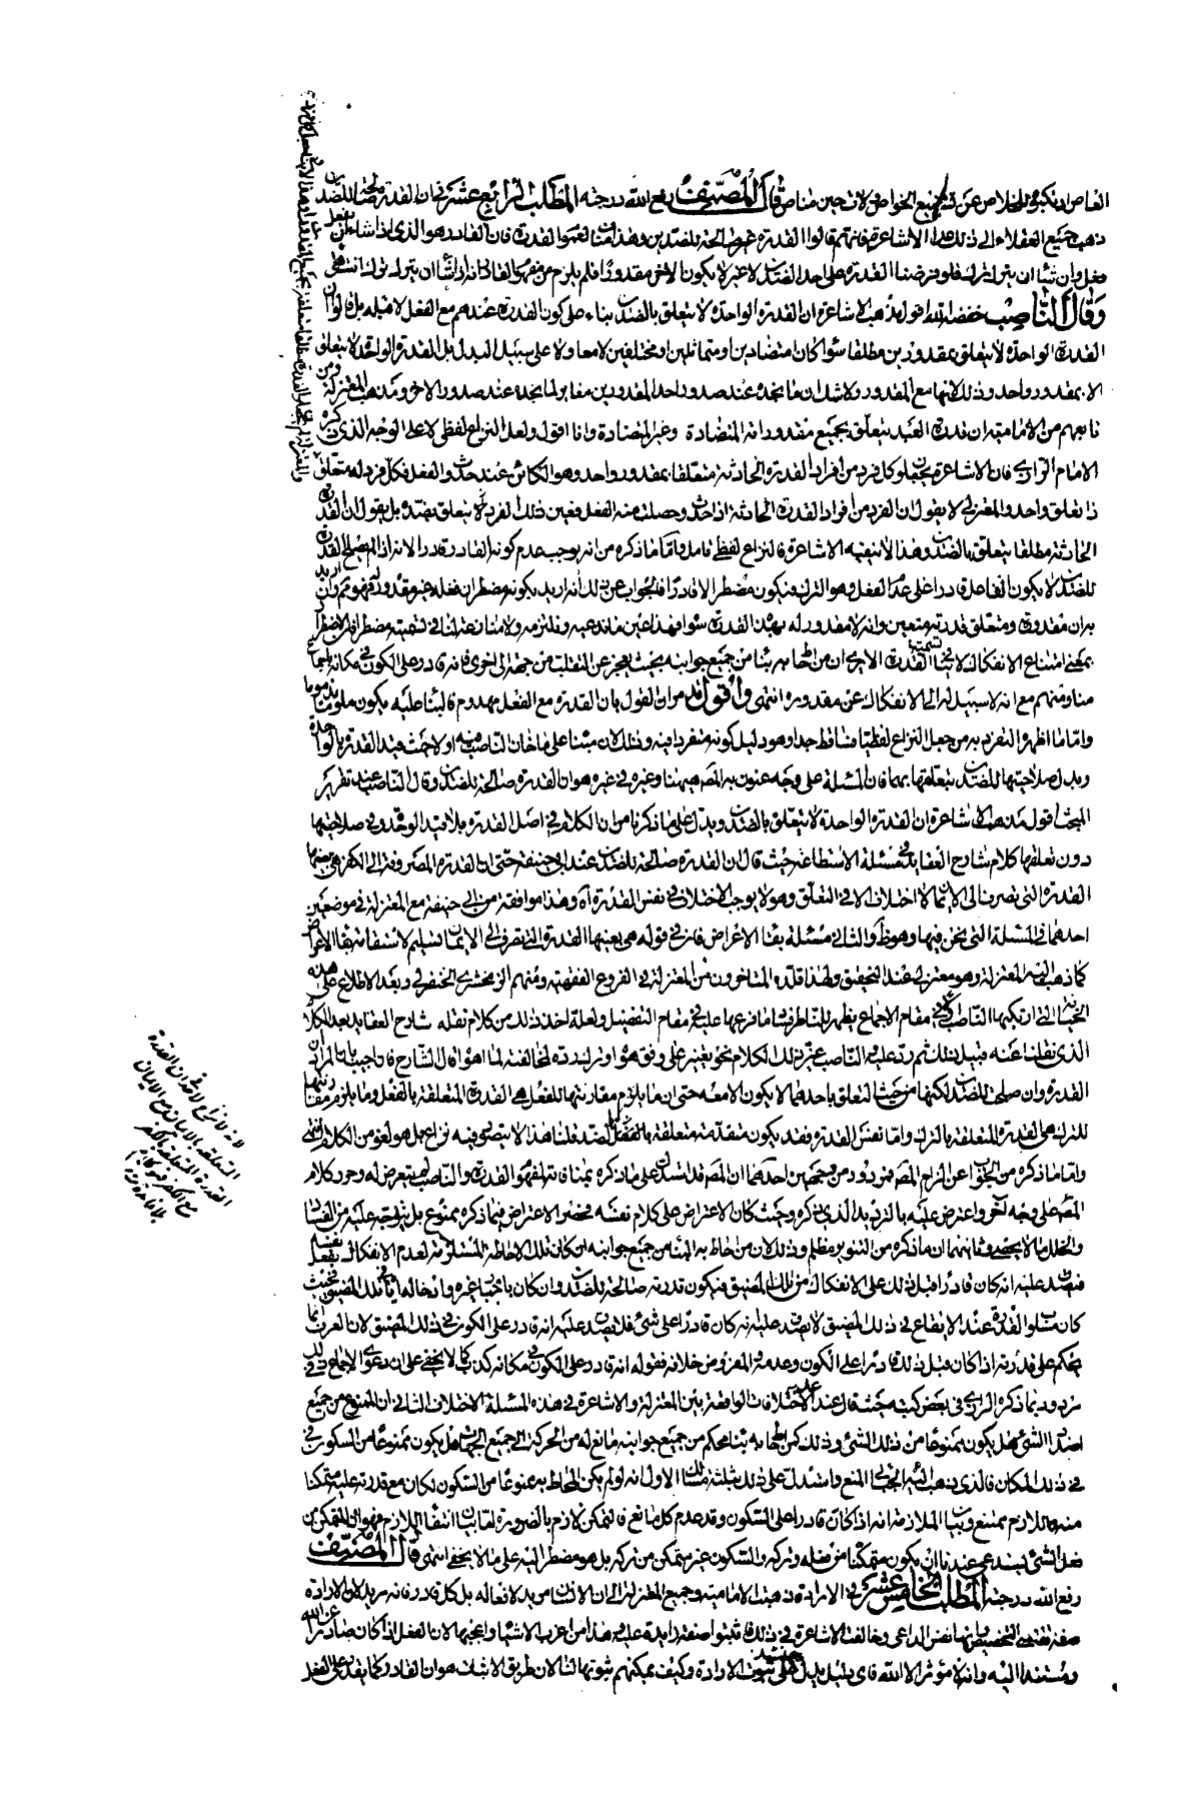 قال المصنف رفع الله درجته المطلب الرابع عشر في ان القدرة صالحة للضدين
ذهب جميع العقلاء الى ذلك عدا الاشاعرة فانهم قالوا القدرة غير صالحة للضدين وهذا مناف لمفهوم القدرة فان القادر هو الذي اذا شاء ان يفعل
فعل وان شاء ان يترك ترك فلو فرضنا القدرة على احد الضدين لا غير لا يكون الاخر مقدورا فلم يلزم من مفهوم القادر انه اذا شاء ان يترك ترك انتهى
وقال الناصب خفضه الله اقول مذهب الاشاعرة ان القدرة الواحدة لا يتعلق بالضدين بناء على كون القدرة عندهم مع الفعل لا قبله بل قالوا ان
القدرة الواحدة لا يتعلق بمقدورين مطلقا سواء كانا متضادين او متماثلين او مختلفين لا معا ولا على سبيل البدل بل القدرة الواحدة لا يتعلق
الا بمقدور واحد وذلك لانها مع المقدور ولا شك ان ما نجده عند صدور احد المقدورين مغاير لما نجده عند صدور الاخر ومذهب المعتزلة ومن
تابعهم من الامامية ان قدرة العبد يتعلق بجميع مقدوراته المتضادة وغير المتضادة وانا اقول ولعل النزاع لفظي لا على الوجه الذي ذكره
الامام الرازي فان الاشاعرة يجعلون كل فرد من افراد القدرة الحادثة متعلقا بمقدور واحد وهو الكائن عند حدوث الفعل فكل فرد له متعلق
ذا تعلق واحد والمعتزلي لا يقول ان الفرد من افراد القدرة الحادثة اذا حدث وحصلت منه الفعل فعين ذلك الفرد يتعلق بضده بل يقول ان القدرة
الحادثة مطلقا يتعلق بالضدين وهذا لا ينفيه الاشاعرة فالنزاع لفظي تامل واما ما ذكره من انه يوجب عدم كونه القادر قادرا لانه اذا لم يصلح القدرة
للضدين لا يكون الفاعل قادرا على عدم الفعل وهو الترك فيكون مضطرا لا قادرا فالجواب عن ذلك انه اريد بكونه مضطرا ان فعله غير مقدور له فهو ممنوع وان اريد
به ان مقدوره ومتعلق قدرته متعين وانه لا مقدور له بهذه القدرة سواه فهذا عين ما ندعيه ونلتزمه ولا منازعة لنا في تسميته مضطرا فان الاضطرار
بمعنى امتناع الانفكاك لا ينافي القدرة الا يرى ان من احاط به بناء من جميع جوانبه بحيث يعجز عن التقلب من جهة الى اخرى فانه قادر على الكون في مكانه باجماع
منا ومنهم مع انه لا سبيل له الى الانفكاك عن مقدوره انتهى واقول قد مر ان القول بان القدرة مع الفعل مهدوم فالبناء عليه يكون ملوما مذموما
واما ما اظهر التفرد به من جعل النزاع لفظيا فساقط جدا وهو دليل كونه منفردا فيه وذلك لان مبناه على ما خان الناصب فيه اولا حيث قيد القدرة بالواحدة
وبدل صلاحيتها للضدين بتعلقها بهما فان المسئلة على وجه عنون به المصنف هيهنا وغيره في غيره هو ان القدرة صالحة للضدين وقال الناصب عند تقرير
المبحث اقول مذهب الاشاعرة ان القدرة الواحدة لا يتعلق بالضدين ويدل على ما ذكرنا من ان الكلام في اصل القدرة بلا قيد الوحدة وفي صلاحيتها
دون تعلقها كلام شارح العقايد في مسئلة الاستطاعة حيث قال ان القدرة صالحة للضدين عند ابي حنيفة حتى ان القدرة المصروفة الى الكفر هي بعينها
القدرة التي تصرف الى الايمان لا اختلاف الا في التعلق وهو لا يوجب الاختلاف في نفس القدرة آه وهذا موافقة من ابي حنيفة مع المعتزلة في موضعين
احدهما في المسئلة التي نحن فيها وهو ظ والثاني مسئلة بقاء الاعراض فان في قوله هي بعينها القدرة التي تصرف الى الايمان تسليم لاستفاضة بقاء الاعراض
كما ذهب اليه المعتزلة وهو معتزلي عند التحقيق ولهذا قلده المتاخرون من المعتزلة في الفروع الفقهية ومنهم الزمخشري الحنفي وبعد الاطلاع على هذه
الخيانة التي ارتكبها الناصب في مقام الاجماع يظهر للناظر فساد ما فرعها عليه في مقام التفصيل ولعله اخذ ذلك من كلام نقله شارح العقايد بعد الكلام
الذي نقلناه عنه قبيل ذلك ثم رد عليه
القدرة وان صلحت للضدين لكنها من حيث التعلق باحدهما لا يكون الا معه حتى ان ما يلزم مقارنتها للفعل هي القدرة المتعلقة بالفعل وما يلزم مقارنتها
للترك هي القدرة المتعلقة بالترك واما نفس القدرة فقد يكون متقدمة متعلقة بالضدين قلنا هذا مما لا يتصور فيه نزاع بل هو لغو من الكلام انتهى
واما ما ذكره من الجواب عن الزام المصنف فمردود من وجهين احدهما ان المصنف قد استدل على ما ذكره بمنافاته لمفهوم القدرة والناصب لم يتعرض له وحرر كلام
المصنف على وجه آخر واعترض عليه بالترديد الذي ذكره وحيث كان الاعتراض على كلام نفسه فحضر الاعتراض فيما ذكره ممنوع بل يتوجه عليه من الفساد
والخلل ما لا يحصى وثانيهما ان ما ذكره من التنوير مظلم وذلك لان من احاط به البناء من جميع جوانبه ان كان تلك الاحاطة المستلزمة لعدم الانفكاك بفعل نفسه
فيصدق عليه انه كان قادرا قبل ذلك على الانفكاك من ذلك المضيق فيكون قدرته صالحة للضدين وان كان باجبار غيره وادخاله اياه في ذلك المضيق بحيث
كان مسلوب القدرة عند الايقاع في ذلك المضيق لا يصدق عليه انه كان قادرا على شئ فلا يصدق عليه انه قادر على الكون في ذلك المضيق لان العرف انما
يحكم على قدرته اذا كان قبل ذلك قادرا على الكون وعدمه والمفروض خلافه فقوله انه قادر على الكون في مكانه كذب كما لا يخفى على ان دعوى الاجماع في ذلك
مردود بما ذكره الرازي في بعض كتبه حيث قال عند الاختلافات الواقعة بين المعتزلة والاشاعرة في هذه المسئلة الاختلاف الثاني ان الممنوع من جميع
اضداد الشئ هل يكون ممنوعا من ذلك الشئ وذلك كمن احاط به بناء محكم من جميع جوانبه مانع له من الحركة الى جميع الجهات هل يكون ممنوعا من السكون في
في ذلك المكان فالذي ذهب اليه الجبائي المنع واستدل على ذلك بثلثة مسالك الاول انه لو لم يكن المحاط به ممنوعا من السكون لكان مع قدرته عليه متمكنا
منه واللازم ممتنع وبيان الملازمة انه اذا كان قادرا على السكون وقد عدم كل مانع فالتمكن لازم بالضرورة اما بيان انتفاء اللازم فهو ان المتمكن من
فعل الشئ يستدعي عندنا ان يكون متمكنا من فعله وتركه والسكون غير متمكن من تركه بل هو مضطر اليه على ما لا يخفى انتهى قال المصنف
رفع الله درجته المطلب الخامس عشر في الارادة ذهبت الامامية وجميع المعتزلة الى ان الانسان مريد لافعاله بل كل قادر فانه مريد لان الارادة
صفة تقتضي التخصيص وانها نفس الداعي وخالفت الاشاعرة في ذلك فاثبتوا صفة زايدة عليه وهذا من اغرب الاشياء واعجبها لان الفعل اذا كان صادرا عن الله
ومستندا اليه وانه لا مؤثر الا الله فاي دليل يدل حينئذ على ثبوت الارادة وكيف يمكنهم ثبوتها لنا لان طريق الاثبات هو ان القادر كما يقدر على الفعل
لانه لا نزاع لاحد في ان القدرة
المتعلقة بالايمان مع الايمان
القدرة المتعلقة بالكفر
مع الكفر فهو كلام
بلا فائدة